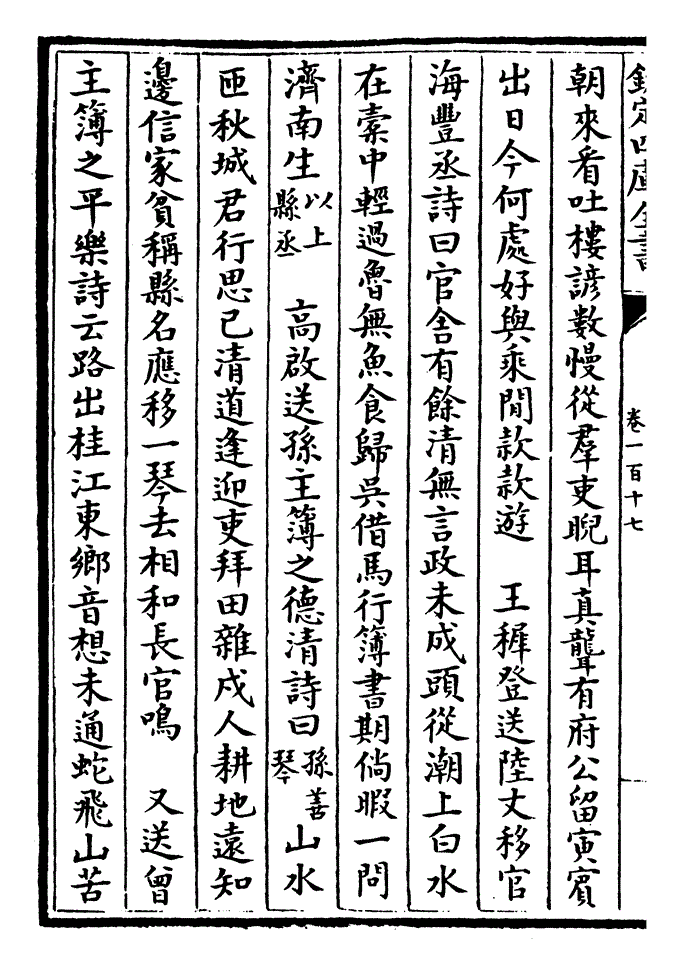 欽定四庫全書
卷一百十七
朝來看吐樓諺數慢從羣吏睨耳真聾有府公留寅賓
出日今何處好與乘閒款款遊　王穉登送陸丈移官
海豐丞詩曰官舍有餘清無言政未成頭從潮上白水
在橐中輕過魯無魚食歸吳借馬行簿書期倘暇一問
濟南生以上縣丞　高啟送孫主簿之德清詩曰孫善琴山水
匝秋城君行思已清道逢迎吏拜田雜戍人耕地遠知
邊信家貧稱縣名應移一琴去相和長官鳴　又送曾
主簿之平樂詩云路出桂江東鄉音想未通蛇飛山苦